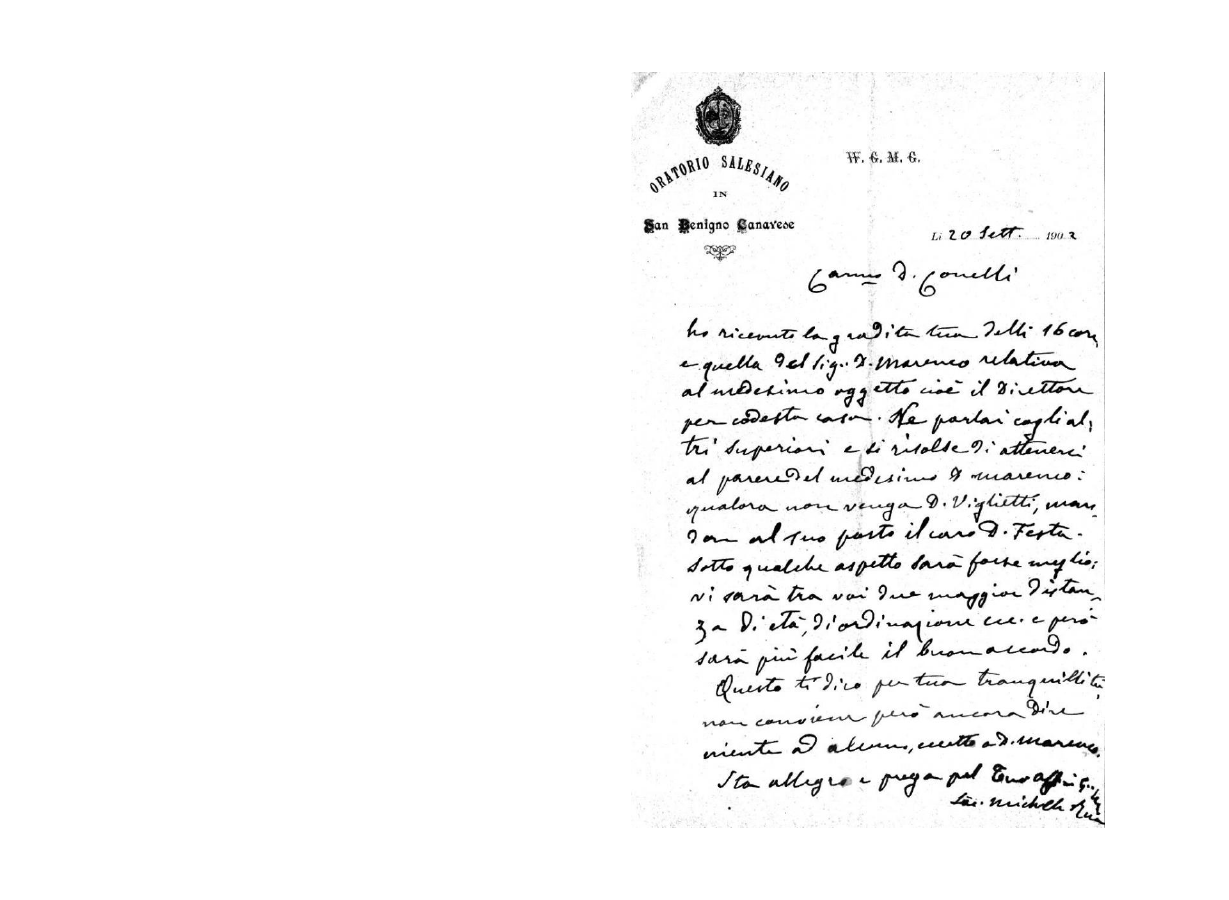 ORATORIO SALESIANO
IN
San Benigno Canavese
W. G. M. G.
Li 20 Sett. 1902
Carmo D. Conelli
ho ricevuto la gradita tua delli 16 corr
e quella del Sig. D. Marenco relativa
al medesimo oggetto cioè il Direttore
per codesta casa. Ne parlai cogli al-
tri superiori e si risolse di attenersi
al parere del medesimo D. Marenco:
qualora non venga D. Viglietti, man-
dare al suo posto il caro D. Festa.
Sotto qualche aspetto sarà forse meglio;
vi sarà tra voi due maggior distan-
za di età, di ordinazione ecc. e però
sarà più facile il buon accordo.
Questo ti dico per tua tranquillità,
non conviene però ancora dire
niente ad alcuno, eccetto a D. Marenco.
Sta allegro e prega pel Tuo aff.
Sac. Michele Rua